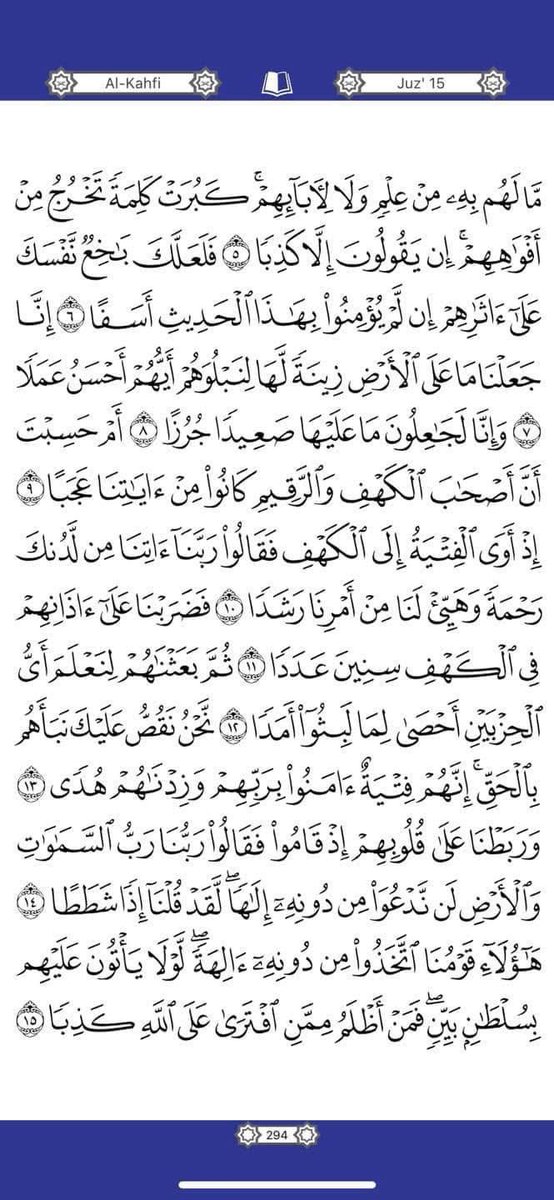 Al-Kahfi
Juz' 15
مَّا لَهُم بِهِۦ مِنْ عِلْمٍ وَلَا لِـَٔابَآئِهِمْ ۚ كَبُرَتْ كَلِمَةً تَخْرُجُ مِنْ
أَفْوَٰهِهِمْ ۚ إِن يَقُولُونَ إِلَّا كَذِبًا ٥ فَلَعَلَّكَ بَـٰخِعٌ نَّفْسَكَ
عَلَىٰٓ ءَاثَـٰرِهِمْ إِن لَّمْ يُؤْمِنُوا۟ بِهَـٰذَا ٱلْحَدِيثِ أَسَفًا ٦ إِنَّا
جَعَلْنَا مَا عَلَى ٱلْأَرْضِ زِينَةً لَّهَا لِنَبْلُوَهُمْ أَيُّهُمْ أَحْسَنُ عَمَلًا
٧ وَإِنَّا لَجَـٰعِلُونَ مَا عَلَيْهَا صَعِيدًا جُرُزًا ٨ أَمْ حَسِبْتَ
أَنَّ أَصْحَـٰبَ ٱلْكَهْفِ وَٱلرَّقِيمِ كَانُوا۟ مِنْ ءَايَـٰتِنَا عَجَبًا ٩
إِذْ أَوَى ٱلْفِتْيَةُ إِلَى ٱلْكَهْفِ فَقَالُوا۟ رَبَّنَآ ءَاتِنَا مِن لَّدُنكَ
رَحْمَةً وَهَيِّئْ لَنَا مِنْ أَمْرِنَا رَشَدًا ١٠ فَضَرَبْنَا عَلَىٰٓ ءَاذَانِهِمْ
فِى ٱلْكَهْفِ سِنِينَ عَدَدًا ١١ ثُمَّ بَعَثْنَـٰهُمْ لِنَعْلَمَ أَىُّ
ٱلْحِزْبَيْنِ أَحْصَىٰ لِمَا لَبِثُوٓا۟ أَمَدًا ١٢ نَّحْنُ نَقُصُّ عَلَيْكَ نَبَأَهُم
بِٱلْحَقِّ ۚ إِنَّهُمْ فِتْيَةٌ ءَامَنُوا۟ بِرَبِّهِمْ وَزِدْنَـٰهُمْ هُدًى ١٣
وَرَبَطْنَا عَلَىٰ قُلُوبِهِمْ إِذْ قَامُوا۟ فَقَالُوا۟ رَبُّنَا رَبُّ ٱلسَّمَـٰوَٰتِ
وَٱلْأَرْضِ لَن نَّدْعُوَا۟ مِن دُونِهِۦٓ إِلَـٰهًا ۖ لَّقَدْ قُلْنَآ إِذًا شَطَطًا ١٤
هَـٰٓؤُلَآءِ قَوْمُنَا ٱتَّخَذُوا۟ مِن دُونِهِۦٓ ءَالِهَةً ۖ لَّوْلَا يَأْتُونَ عَلَيْهِم
بِسُلْطَـٰنٍۭ بَيِّنٍ ۖ فَمَنْ أَظْلَمُ مِمَّنِ ٱفْتَرَىٰ عَلَى ٱللَّهِ كَذِبًا ١٥
294